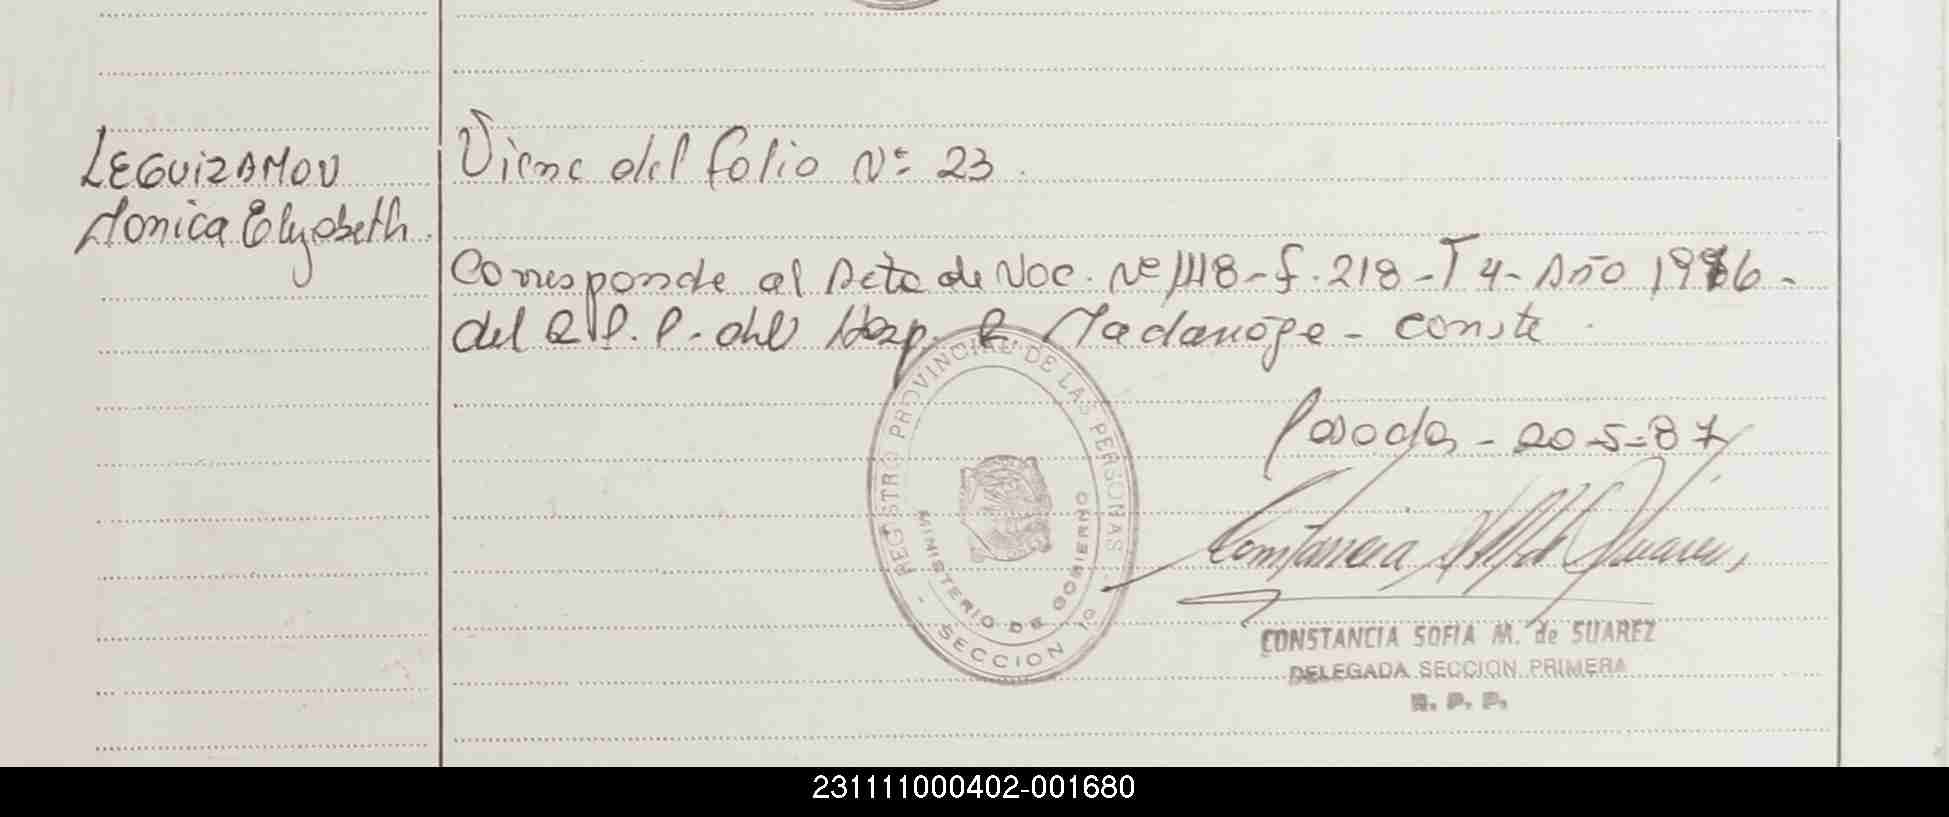 LEGUIZAMON
Monica Elyzabeth.
Viene del folio Nº 23.
Corresponde al Acta de Nac. Nº 1118 - f. 218 - T 4 - Año 1986 -
del R.P.P. del Hosp. R Madariaga - conste.
Posadas - 20-5-87
REGISTRO PROVINCIAL DE LAS PERSONAS
MINISTERIO DE GOBIERNO
- SECCION 1º -
CONSTANCIA SOFIA M. de SUAREZ
DELEGADA SECCION PRIMERA
R. P. P.
231111000402-001680